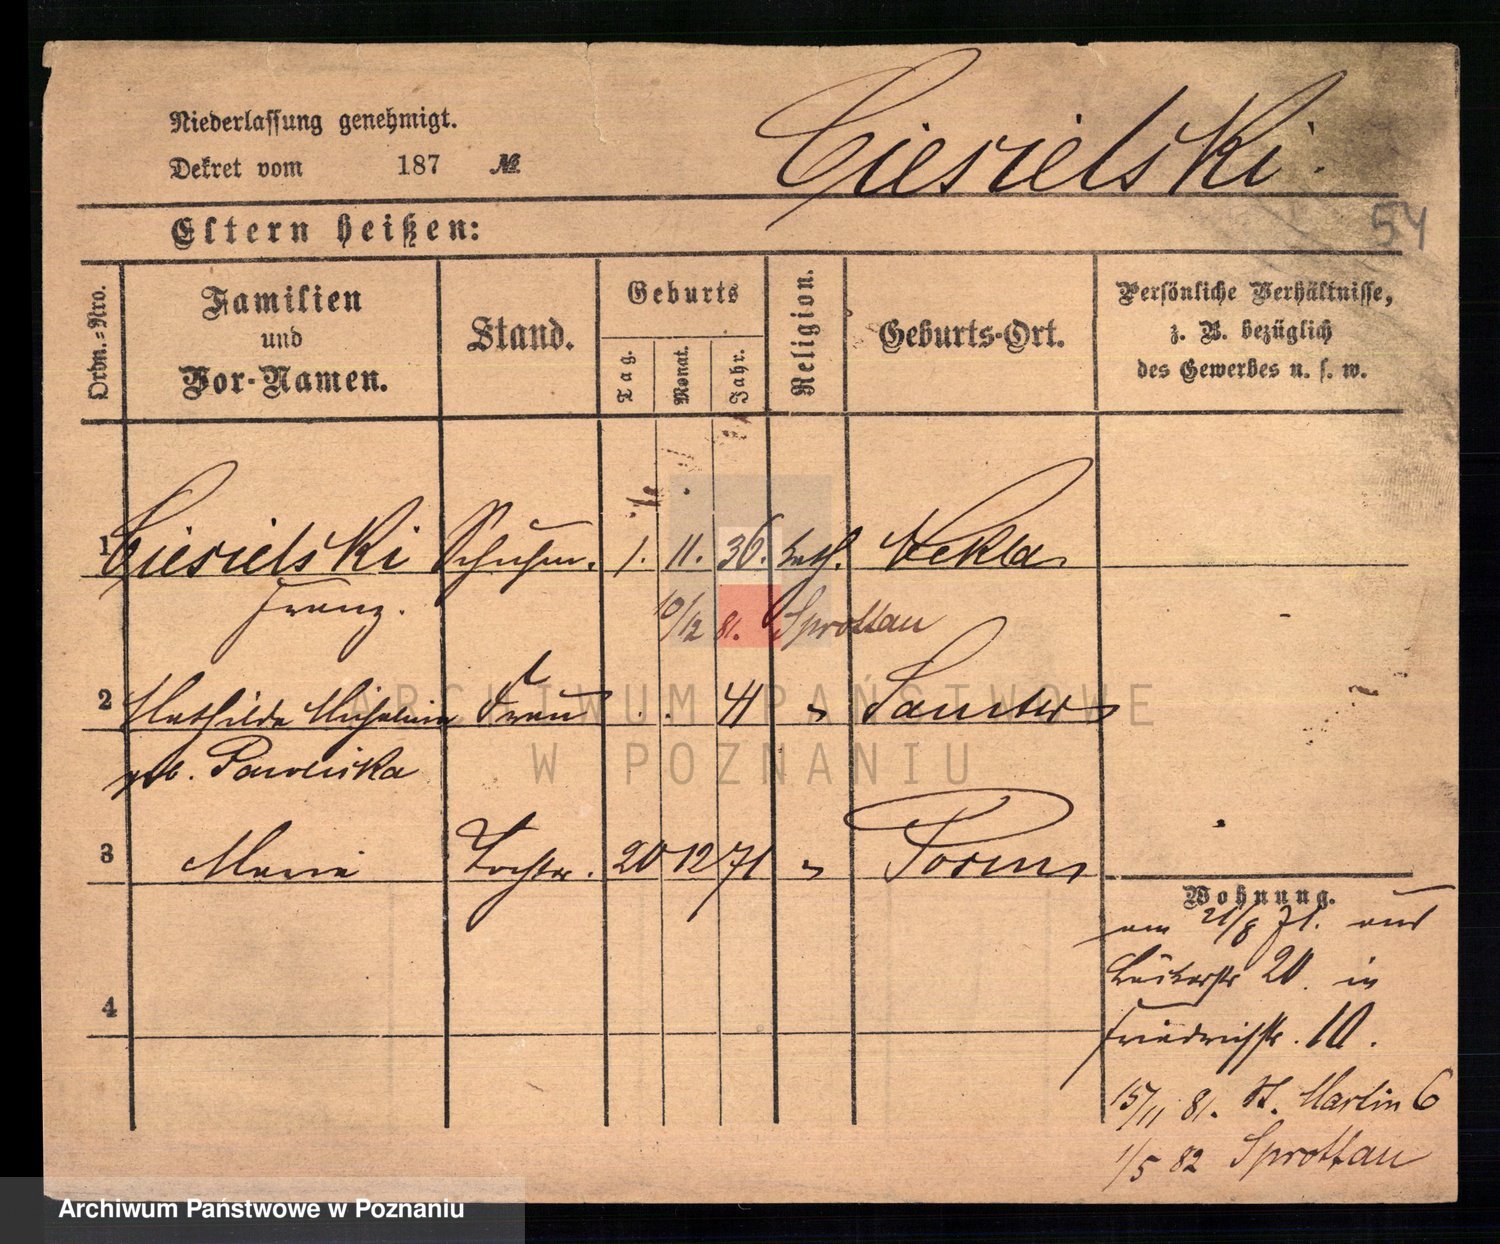 Niederlassung genehmigt.
Ciesielski.
Dekret vom 187 №
54
Eltern heißen:
Ordn.=Nro.
Familien
und
Vor-Namen.
Stand.
Geburts
Tag.
Monat.
Jahr.
Religion.
Geburts-Ort.
Persönliche Verhältnisse,
z. B. bezüglich
des Gewerbes u. s. w.
1 Ciesielski Schuhm. 1. 11. 36. kath. Nekla
Franz.
10/12 81. Sprottau
2 Mathilde Frau 41 " Samter
geb.
3 Marie Tochter. 20 12 71 " Posen
4
Wohnung.
am 21/8 71. aus
20. in
Friedrichstr. 10.
15/11 81. St. Martin 6
1/5 82 Sprottau
ARCHIWUM PAŃSTWOWE
W POZNANIU
Archiwum Państwowe w Poznaniu